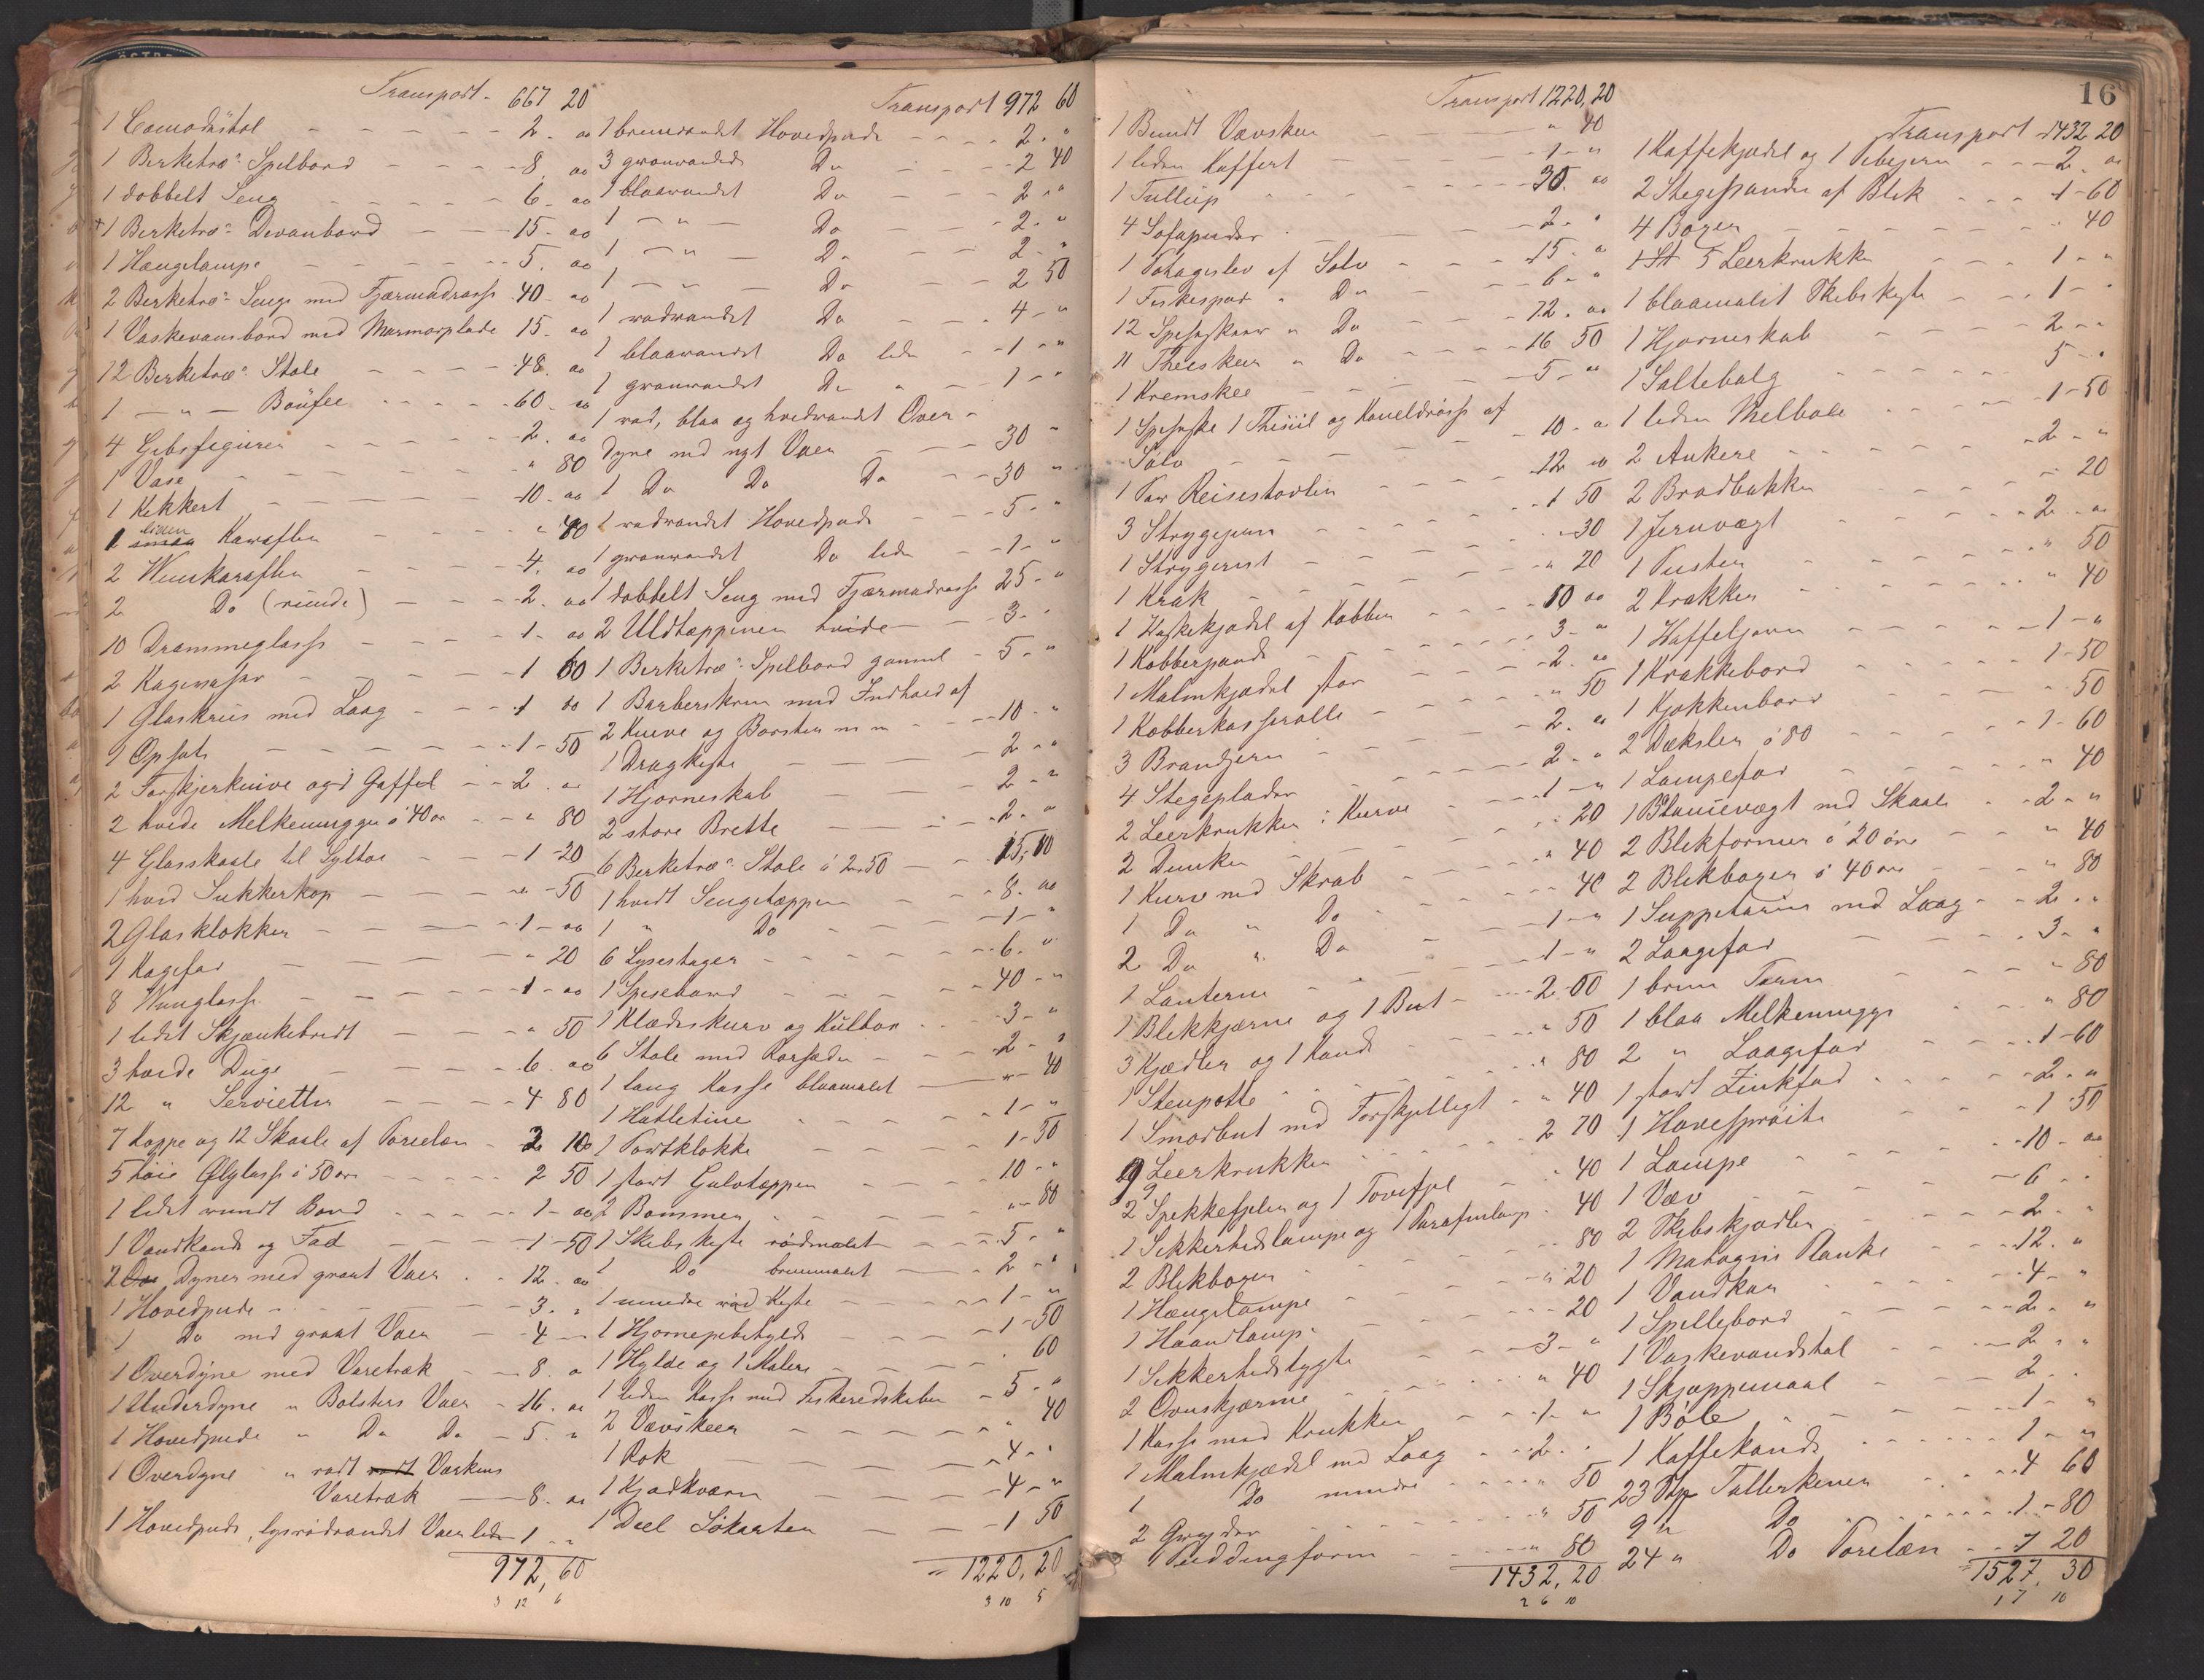 Transport - 667 20
1 Comodüstol 2. oo
1 Berketræs Spilbord 8. oo
1 dobbelt Seng 6. oo
+ 1 Berketræs Devanbord 15. oo
1 Hængelampe 5. oo
2 Berketræs Senge med Fjærmadrasse 40. oo
1 Vaskevansbord med Marmorplade 15. oo
12 Berketræs Stole 48. oo
1 — " — Boüfee 60. oo
4 Gibsfigurer 2. oo
1 Vase " 80
1 Kikkert 10. oo
1 liden Karaflen " 40
2 Vinkaraflen 4. oo
2 Do (runde) 2. oo
10 Drammeglass 1. oo
2 Kagevaser 1 60
1 Glaskrus med Laag 1 oo
1 Opsats 1-50
2 Forskjerknive og 1 Gaffel 2. oo
2 hvide Melkemugger á 40 ør " 80
4 Glasskaale til Syltøi 1-20
1 hvid Sukkerkop " -50
2 Glasklokker 1-oo
1 Kagefad " 20
8 Vinglass 1-oo
1 lidet Skjænkebredt " 50
3 hvide Duge 6. oo
12 " Servietter 4 80
7 Koppe og 12 Skaale af Porcelæn 2 10
5 høie Ølglass á 50 ør 2 50
1 lidet rundt Bord 1-oo
1 Vandkande og Fad 1-50
2 Dyner med graat Vaer 12. oo
1 Hovedpude 3. "
1 Do med graat Vaer 4 —
1 Overdyne med Varetræk 8. o
1 Underdyne " Bolsters Vaer 16. oo
1 Hovedpude " Do Do 5. "
1 Overdyne " rødt Vaskens
Varetræk 8. oo
1 Hovedpude, lysrødrandet Vaer liden 1 "
972,60
3 12 6
Transport 972 60
1 brunrandet Hovedpude 2. "
3 grønrandede Do 2 40
1 blaarandet Do 2 "
1 — " — Do 2. "
1 — " — Do 2- "
1 — — Do 2 50
1 rødrandet Do 4- "
1 blaarandet Do liden 1 - "
1 grønrandet Do " 1 - "
1 rød, blaa og hvidrandet Over-
dyne med nyt Vaer 30 "
1 Do Do Do 30 "
1 rødrandet Hovedpude 5 - "
1 grønrandet Do liden 1- "
1 dobbelt Seng med Fjærmadrass 25 - "
2 Uldtæppener hvide 3. "
1 Berketræs Spilbord gammel 5 - "
1 Barberskrin med Indhold af
2 Knive og Børster m m 10 - "
1 Dragkiste 2 - "
1 Hjørneskab 2 - "
2 store Brette 2. o
6 Berketræs Stole á 2 50 15,00
1 hvidt Sengetæppe 8. oo
1 " Do 1 - "
6 Lysestager 6. "
1 Spisebord 40 - "
1 Klædeskurv og Kulbør 3 - "
6 Stole med Rørsæder 2 - "
1 lang Kasse blaamalet " 40
1 Hatletine 1 - "
1 Bortklokke 1-50
1 stort Gulvtæppe 10 - "
2 Bommer " 80
1 Skibskiste rødmalet 5 - "
1 Do brunmalet 2 - "
1 mindre rød Kiste 1 - "
1 Hjørnepibehylde 1-50
1 Hylde og 1 Malere . 60
1 liden Kasse med Fiskeredskaber 5 - "
2 Vævskeer " 40
1 Rok 4 - "
1 Kjødkværn 4 - "
1 Deel Søkarter 1 50
= 1220,20
3 10 5
16
Transport 1220,20
1 Bundt Vævskeer " 40
1 liden Kuffert 1 - "
1 Tullup 30. oo
4 Sofapuder 2. "
1 Potageslev af Sølv 15. o
1 Fiskespade " Do 6 - "
12 Spiseskeer " Do 72. oo
11 Theeskeer " Do 16 50
1 Kremskee 5 - "
1 Spiseske 1 Thesiil og Kaneldaase af
Sølv 10 - o
1 Par Reisestøvler 12 oo
3 Strygejern 1 50
1 Strygerist - 30
1 Krak " 20
1 Vaskekjædel af Kobber 10 oo
1 Kobberpande 3 - "
1 Malmkjædel stor 2. oo
1 Kobberkasserolle " 50
3 Brandjern 2. oo
4 Stegeplader 2 - "
2 Leerkrukker i Kurve 1 - "
2 Dunke " 20
1 Kurv med Skrab " 40
1 Do " Do 40
2 Do " Do 1 - "
1 Lanterne 1 - "
1 Blekkjærne og 1 But 2 00
3 Kjædler og 1 Kande " 50
1 Stenpotte " 80
1 Smørbut med Forskjelligt " 40
9 Leerkrukker 2 70
2 Spekkefjeler og 1 Tovefjel " 40
1 Sikkerhedslampe og 1 Parafinlampe 40
2 Blekbøger 80
1 Hængelampe " 20
1 Haandlampe 20
1 Sikkerhedslygte 3 - "
2 Ovnskjærme " 40
1 Kasse med Krukker 1 - "
1 Malmkjædel med Laag 2. "
1 Do mindre " 50
2 Gryder " 50
1 Puddingform " 80
1432,20
2 6 10
Transport 1432 20
1 Kaffekjædel og 1 Vibejern 2. oo
2 Stegepander af Blik 1-60
4 Bøger . 40
5 Leerkrukke 1 - "
1 blaamalet Skibskiste 1 - "
1 Hjørneskab 2 - "
1 Saltebalg 5 - "
1 liden Melbole 1-50
2 Ankere 2 - "
2 Brødbakker - 20
1 Jernvægt 2 - oo
1 Pusten " 50
2 Krakker " 40
1 Vaffeljern 1 - "
1 Krakkebord 1-50
1 Kjøkkenbord . 50
2 Dæksler á 80 1-60
1 Lampefad " 40
1 Blaamevægt med Skaale 2 - "
2 Blikformer á 20 øre " 40
2 Blikbøger á 40 ør " 80
1 Suppeterin med Laag 2 - "
2 Laagefad 3. "
1 brun Terin " 80
1 blaa Melkemugge " 80
2 " Laagefad 1-60
1 stort Zinkfad 2 - "
1 Havesprøite 1 50
1 Lampe 10 - oo
1 Væv 6 - "
2 Skibskjædler 2. "
1 Mahogni Planke 12. "
1 Vandkar 4 - "
1 Spillebord 2. "
1 Vaskevandstol 2 - "
1 Skjæppemaal 2 . .
1 Bøle 1 - "
1 Kaffekande 1 - "
23 Tallerkener 4 60
9 " Do 1-80
24 " Do Porelæn 7 20
= 1527,30
1 7 10